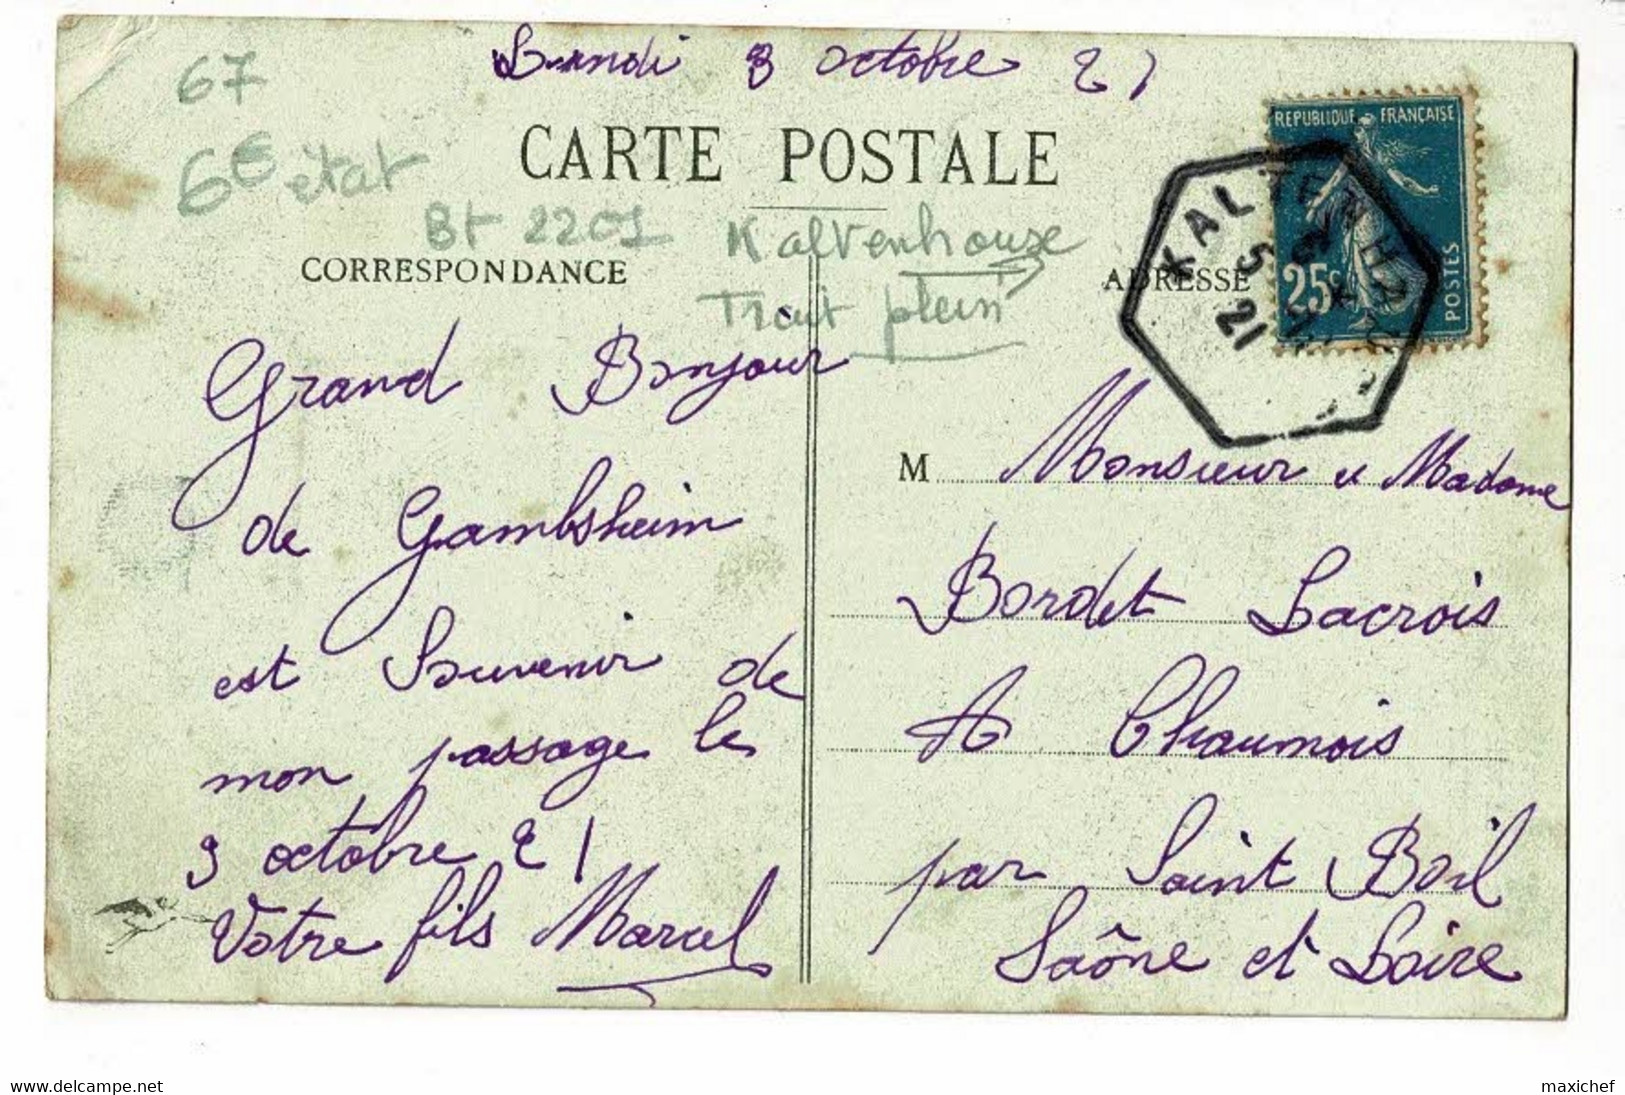 Lundi 3 octobre 21
67
6€ état
CARTE POSTALE
Bt 2201 Kaltenhouse
Trait plein
CORRESPONDANCE
ADRESSE
REPUBLIQUE FRANÇAISE
25c
POSTES
KALTENH
5
21
Grand Bonjour
de Gambsheim
est Souvenir de
mon passage le
3 octobre 21
Votre fils Marcel
M Monsieur et Madame
Bordet Lacrois
A Chaumois
par Saint Boil
Saône et Loire
www.delcampe.net
maxichef